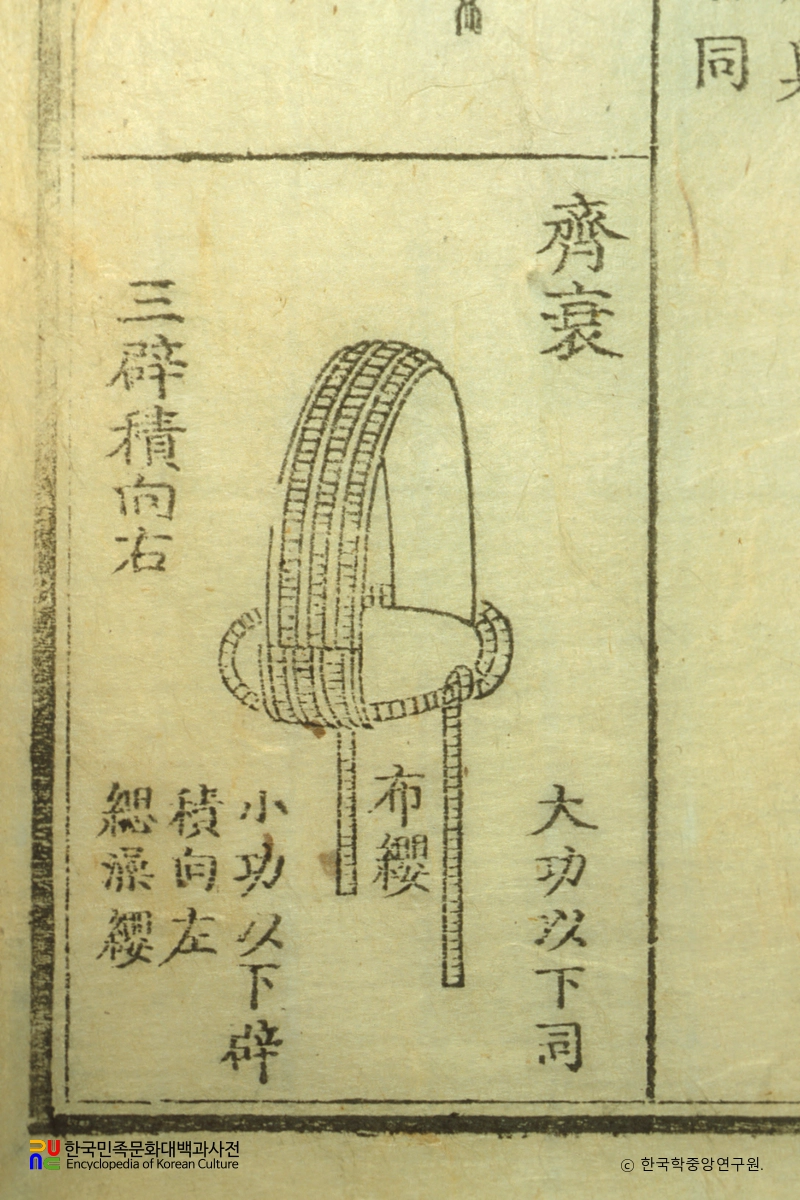 同
齊衰
大功以下同
布纓
小功以下辟
積向左
緦澡纓
三辟積向右
한국민족문화대백과사전
Encyclopedia of Korean Culture
ⓒ 한국학중앙연구원.